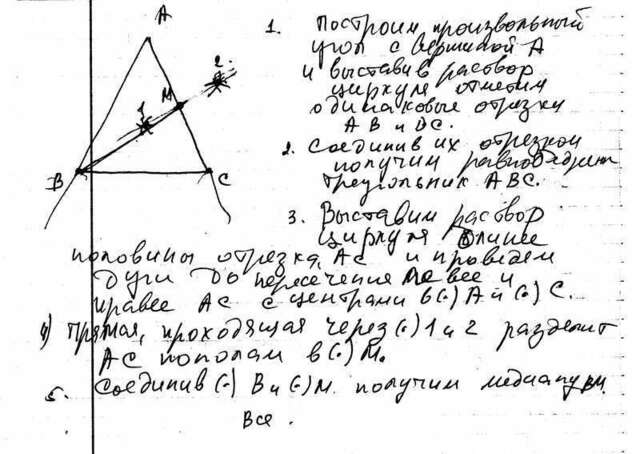 A
2.
M
1
B
C
1. Построим произвольный
угол с вершиной А
и выставив раствор
циркуля отметим
одинаковые отрезки
АВ и
2. Соединив их отрезком
получим равнобедрен
треугольник АВС.
3. Выставим раствор
циркуля
половины отрезка АС и проведем
дуги до пересечения левее и
правее АС с центрами в (·) А и (·) С.
4) Прямая, проходящая через (·) 1 и 2 разделит
АС пополам в (·) М.
5. Соединив (·) В и (·) М. получим медиану ВМ.
Все.